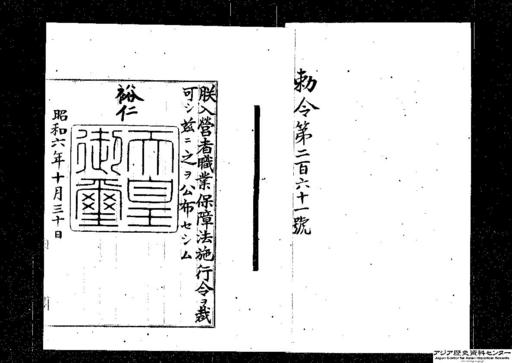 勅令第二百六十一號
朕入營者職業保障法施行令ヲ裁
可シ茲ニ之ヲ公布セシム
裕仁
天皇
御璽
昭和六年十月三十日
アジア歴史資料センター
Japan Center for Asian Historical Records